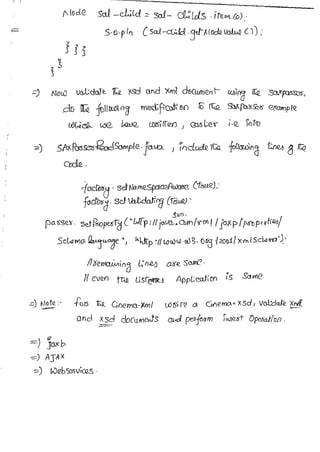 Node sal-child = sal-childs.item(0);
S.o.pln (sal-child.getNodeValue());
} } }
}
=) Now validate the xsd and xml document using the saxparser,
do the following modification to the SaxParser example
which we have written, easlier i.e into
=) SAxParserReadSample.java, include the following lines of the
code.
factory.setNamespaceAware (true);
factory.setValidating (true);
parser.setProperty ("http://java.sun.com/xml/jaxp/properties/
schema language", "http://www.w3.org/2001/xmlschema");
//remaining lines are same.
// even the Listener Application is same.
=) Note:- for the Cinema.xml write a Cinema.xsd, validate xml
and xsd documents and perform insert operation.
=) Jaxb.
=) AJAX
=) Webservices.